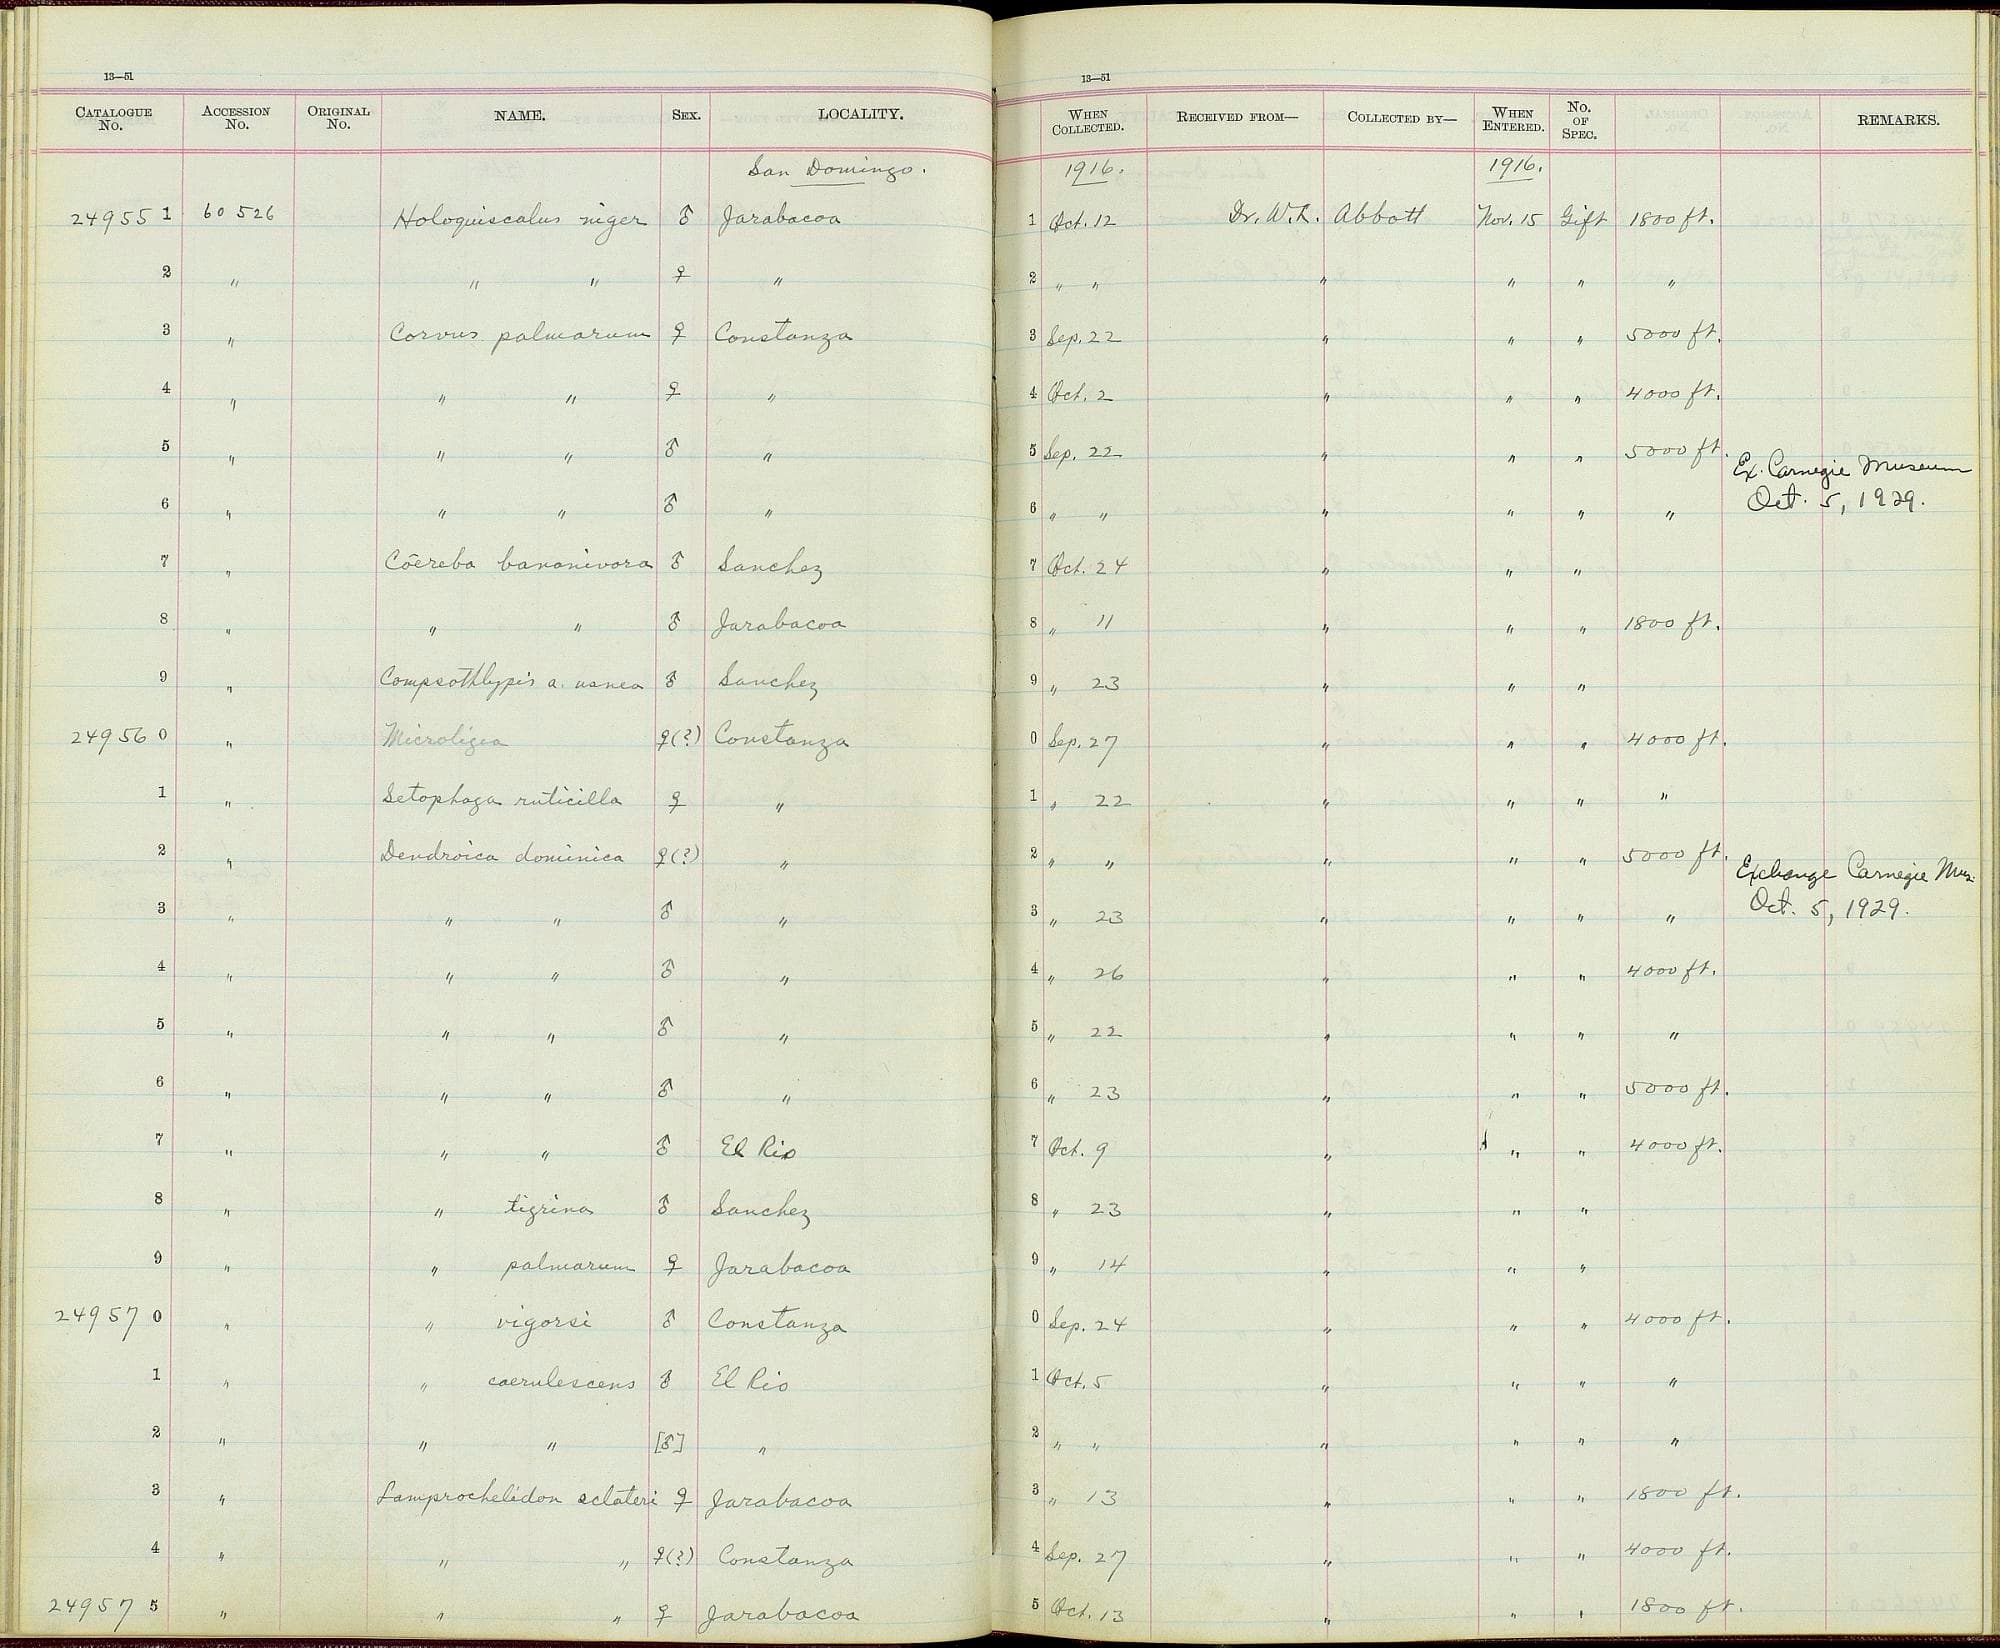 13—51
CATALOGUE No. ACCESSION No. ORIGINAL No. NAME. SEX. LOCALITY.
San Domingo.
24955 1 60 526 Holoquiscalus niger ♂ Jarabacoa
2 " " " ♀ "
3 " Corvus palmarum ♀ Constanza
4 " " " ♀ "
5 " " " ♂ "
6 " " " ♂ "
7 " Cōereba bananivora ♂ Sanchez
8 " " " ♂ Jarabacoa
9 " Compsothlypis a. usnea ♂ Sanchez
24956 0 " Microligea ♀(?) Constanza
1 " Setophaga ruticilla ♀ "
2 " Dendroica dominica ♀(?) "
3 " " " ♂ "
4 " " " ♂ "
5 " " " ♂ "
6 " " " ♂ "
7 " " " ♂ El Rio
8 " " tigrina ♂ Sanchez
9 " " palmarum ♀ Jarabacoa
24957 0 " " vigorsi ♂ Constanza
1 " " caerulescens ♂ El Rio
2 " " " [♂] "
3 " Lamprochelidon sclateri ♀ Jarabacoa
4 " " " ♀(?) Constanza
24957 5 " " " ♀ Jarabacoa
13—51
WHEN COLLECTED. RECEIVED FROM— COLLECTED BY— WHEN ENTERED. No. OF SPEC. REMARKS.
1916. 1916.
1 Oct. 12 Dr. W. L. Abbott Nov. 15 Gift 1800 ft.
2 " " " " " "
3 Sep. 22 " " " 5000 ft.
4 Oct. 2 " " " 4000 ft.
5 Sep. 22 " " " 5000 ft. Ex. Carnegie Museum
Oct. 5, 1929.
6 " " " " " "
7 Oct. 24 " " "
8 " 11 " " " 1800 ft.
9 " 23 " " "
0 Sep. 27 " " " 4000 ft.
1 " 22 " " " "
2 " " " " " 5000 ft. Exchange Carnegie Mus.
Oct. 5, 1929.
3 " 23 " " " "
4 " 26 " " " 4000 ft.
5 " 22 " " " "
6 " 23 " " " 5000 ft.
7 Oct. 9 " " " 4000 ft.
8 " 23 " " "
9 " 14 " " "
0 Sep. 24 " " " 4000 ft.
1 Oct. 5 " " " "
2 " " " " " "
3 " 13 " " " 1800 ft.
4 Sep. 27 " " " 4000 ft.
5 Oct. 13 " " " 1800 ft.